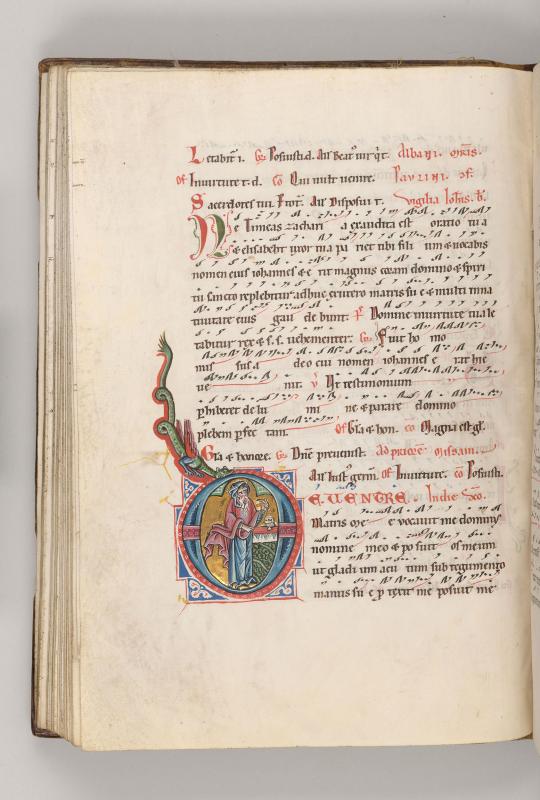 Letabit i. Gr Posuisti d. All Beat vir qt. Albani. mris.
Of In virtute t. d. Co Qui vult venire. Paulini. ost.
Sacerdotes tui. Prot. All Disposui t. Vigilia Iohis. b.
Ne timeas zachari a exaudita est oratio tu a
& elisabeht uxor tua pa riet tibi fili um & vocabis
nomen eius iohannes & e rit magnus coram domino & spiri
tu sancto replebitur adhuc ex utero matris su e & multi in na
tivitate eius gau de bunt. Ps Domine in virtute tua le
tabitur rex & s. s. vehementer. Gr Fuit ho mo
mis sus a deo cui nomen iohannes e rat hic
ve nit. V Ut testimonium
phiberet de lu mi ne & parare domino
plebem p fec tam. Of Gla & hon. Co Magna est gl.
Gla & honore. Gr Dne prevenist. ad priorem missam.
All Iust germ. Of In virtute. Co Posuisti.
DE VENTRE. In die Sco.
Matris me e vocavit me dominus
nomine meo & po suit os meum
ut gladi um acu tum sub tegumento
manus su e p texit me posuit me